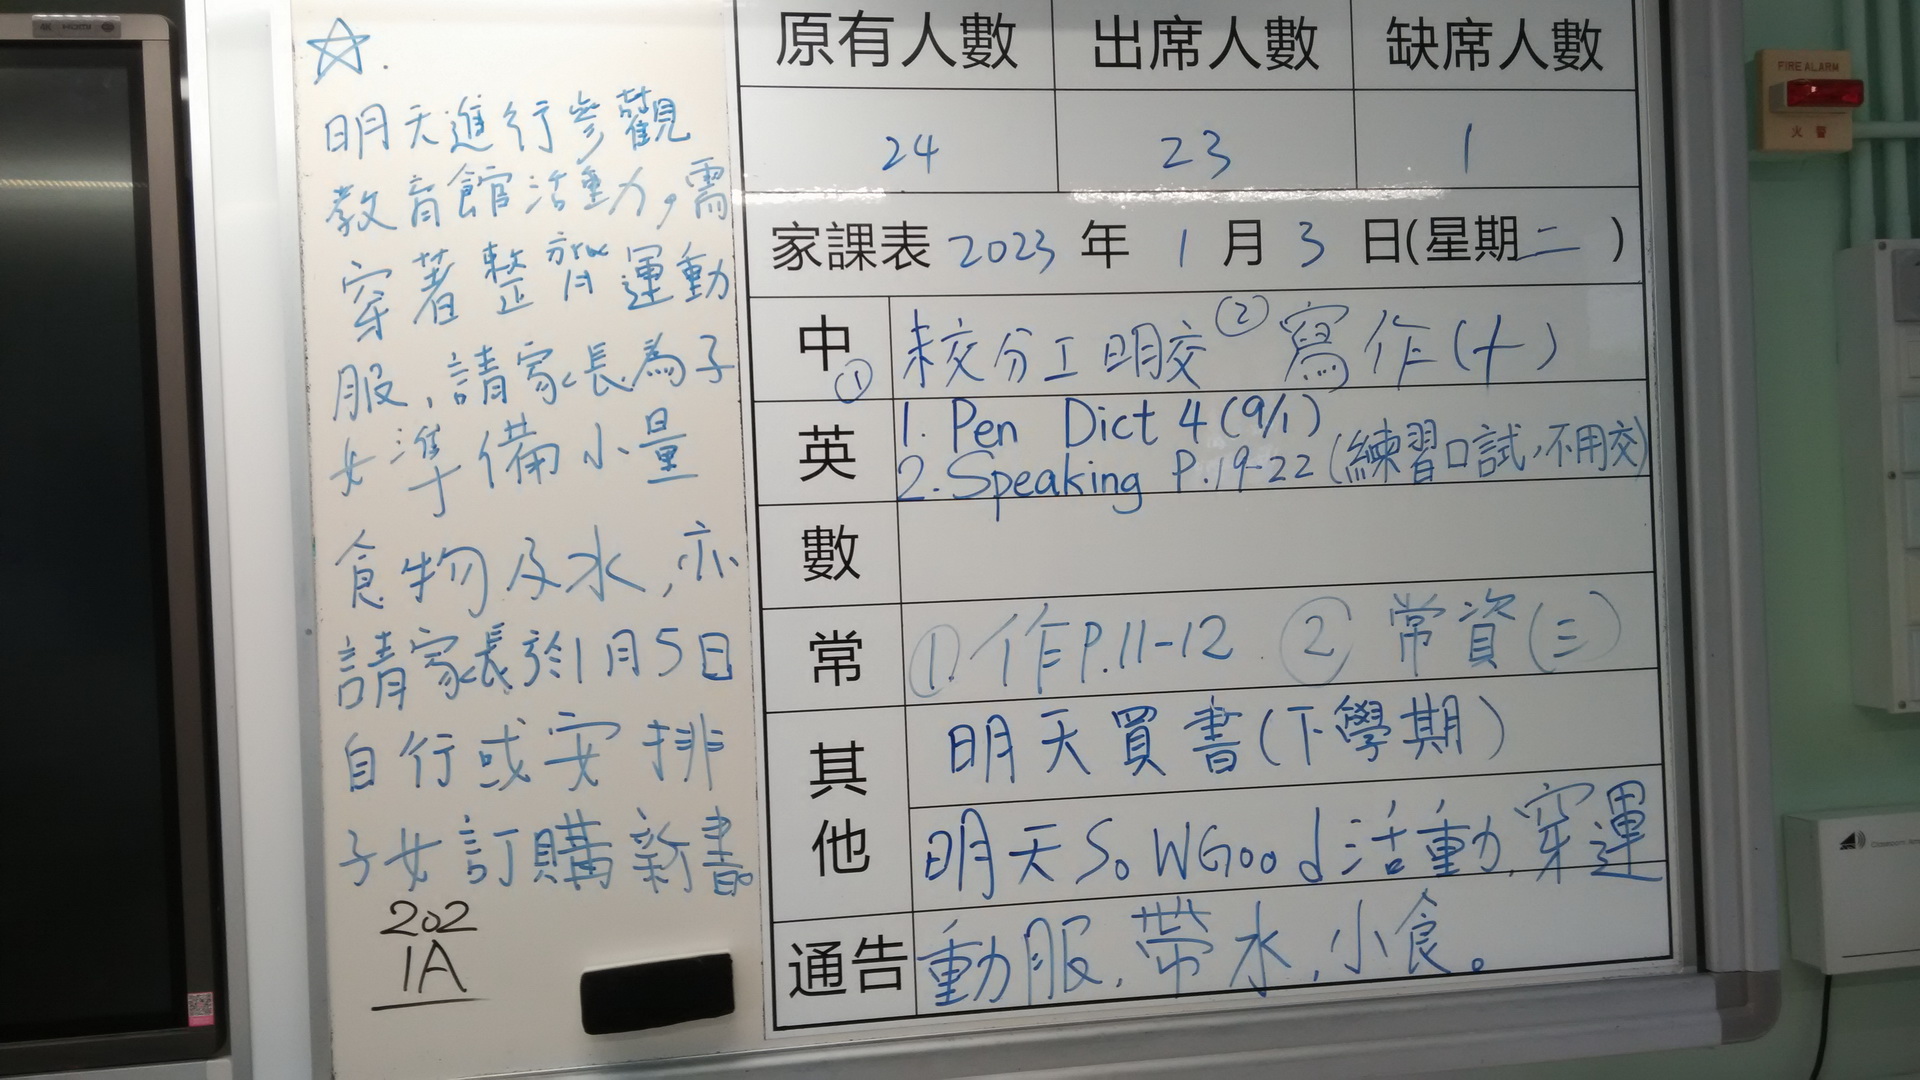 HDMI
☆.
明天進行參觀
教育館活動,需
穿著整齊運動
服,請家長為子
女準備小量
食物及水,亦
請家長於1月5日
自行或安排
子女訂購新書
202
1A
原有人數 出席人數 缺席人數
24 23 1
家課表 2023 年 1 月 3 日(星期二)
中 ① 校分工明交 ② 寫作(十)
英 1. Pen Dict 4 (9/1)
2. Speaking P.19-22 (練習口試,不用交)
數
常 ①. 作P.11-12. ② 常資(三)
其他 明天買書(下學期)
明天SoWGood活動,穿運
通告 動服,帶水,小食。
FIRE ALARM
火警